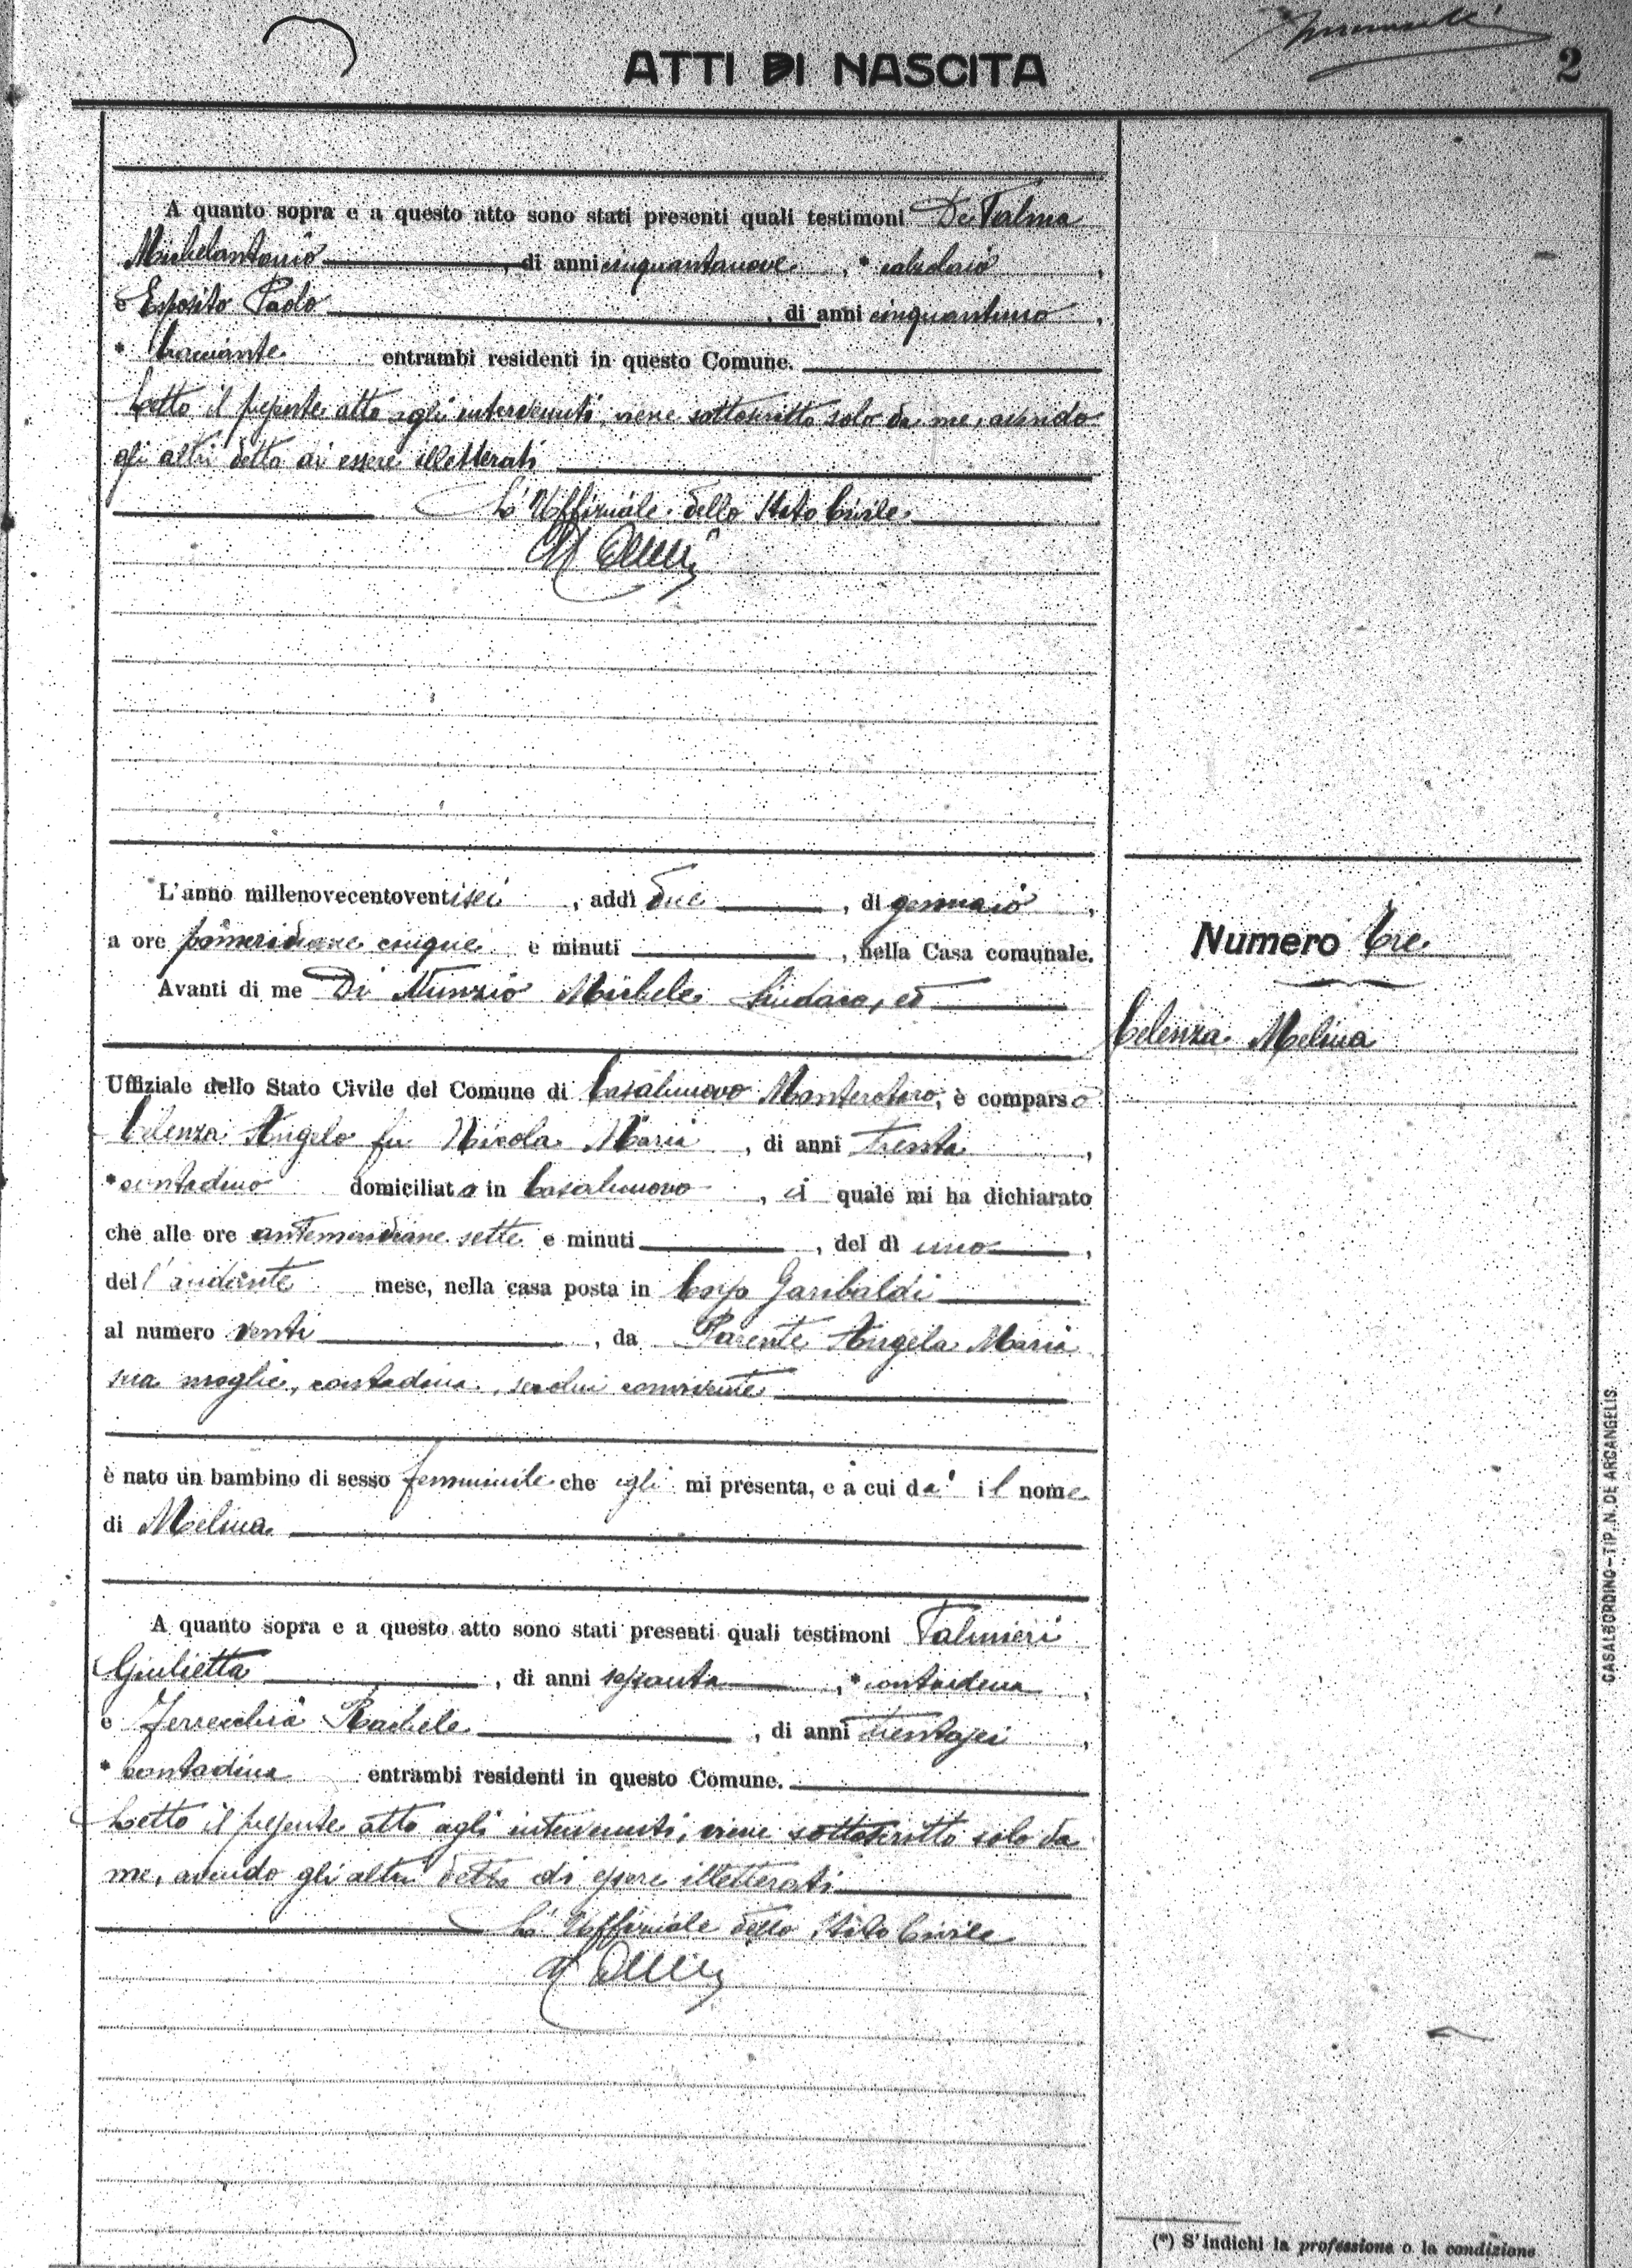 ATTI DI NASCITA
2
A quanto sopra e a questo atto sono stati presenti quali testimoni De Palma
Michelantonio, di anni cinquantanove, * calzolaio,
e Esposito Paolo, di anni cinquantuno,
* bracciante entrambi residenti in questo Comune.
Letto il presente atto agli intervenuti, viene sottoscritto solo da me, avendo
gli altri detto di essere illetterati
L'Uffiziale dello Stato Civile
L'anno millenovecentoventisei, addì due, di gennaio,
a ore pomeridiane cinque e minuti , nella Casa comunale.
Avanti di me Di Nunzio Michele Sindaco, ed
Uffiziale dello Stato Civile del Comune di Casalnuovo Monterotaro, è comparso
Celenza Angelo fu Nicola Maria, di anni trenta,
* contadino domiciliato in Casalnuovo, il quale mi ha dichiarato
che alle ore antemeridiane sette e minuti , del dì uno,
dell'andante mese, nella casa posta in Corso Garibaldi
al numero venti, da Parente Angela Maria
sua moglie, contadina, seco lui convivente
è nato un bambino di sesso femminile che egli mi presenta, e a cui dà il nome
di Melina
A quanto sopra e a questo atto sono stati presenti quali testimoni Palmieri
Giulietta, di anni sessanta, * contadina,
e Ferrecchia Rachele, di anni trentasei,
* contadina entrambi residenti in questo Comune.
Letto il presente atto agli intervenuti, viene sottoscritto solo da
me, avendo gli altri detto di essere illetterati
L'Uffiziale dello Stato Civile
Numero tre
Celenza Melina
CASALBORDINO-TIP. N. DE ARCANGELIS
(*) S'indichi la professione o la condizione